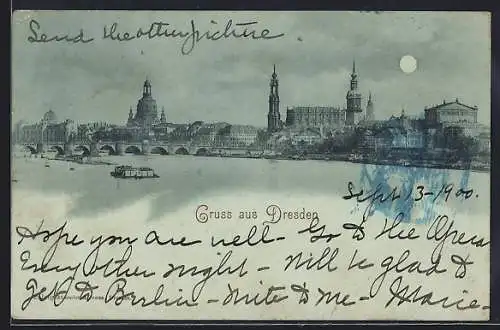 Send the other picture
Gruss aus Dresden
Sept 3-1900.
Hope you are well - Go to the Opera
Every other night - Will be glad to
get to Berlin - Write to me - Marie -